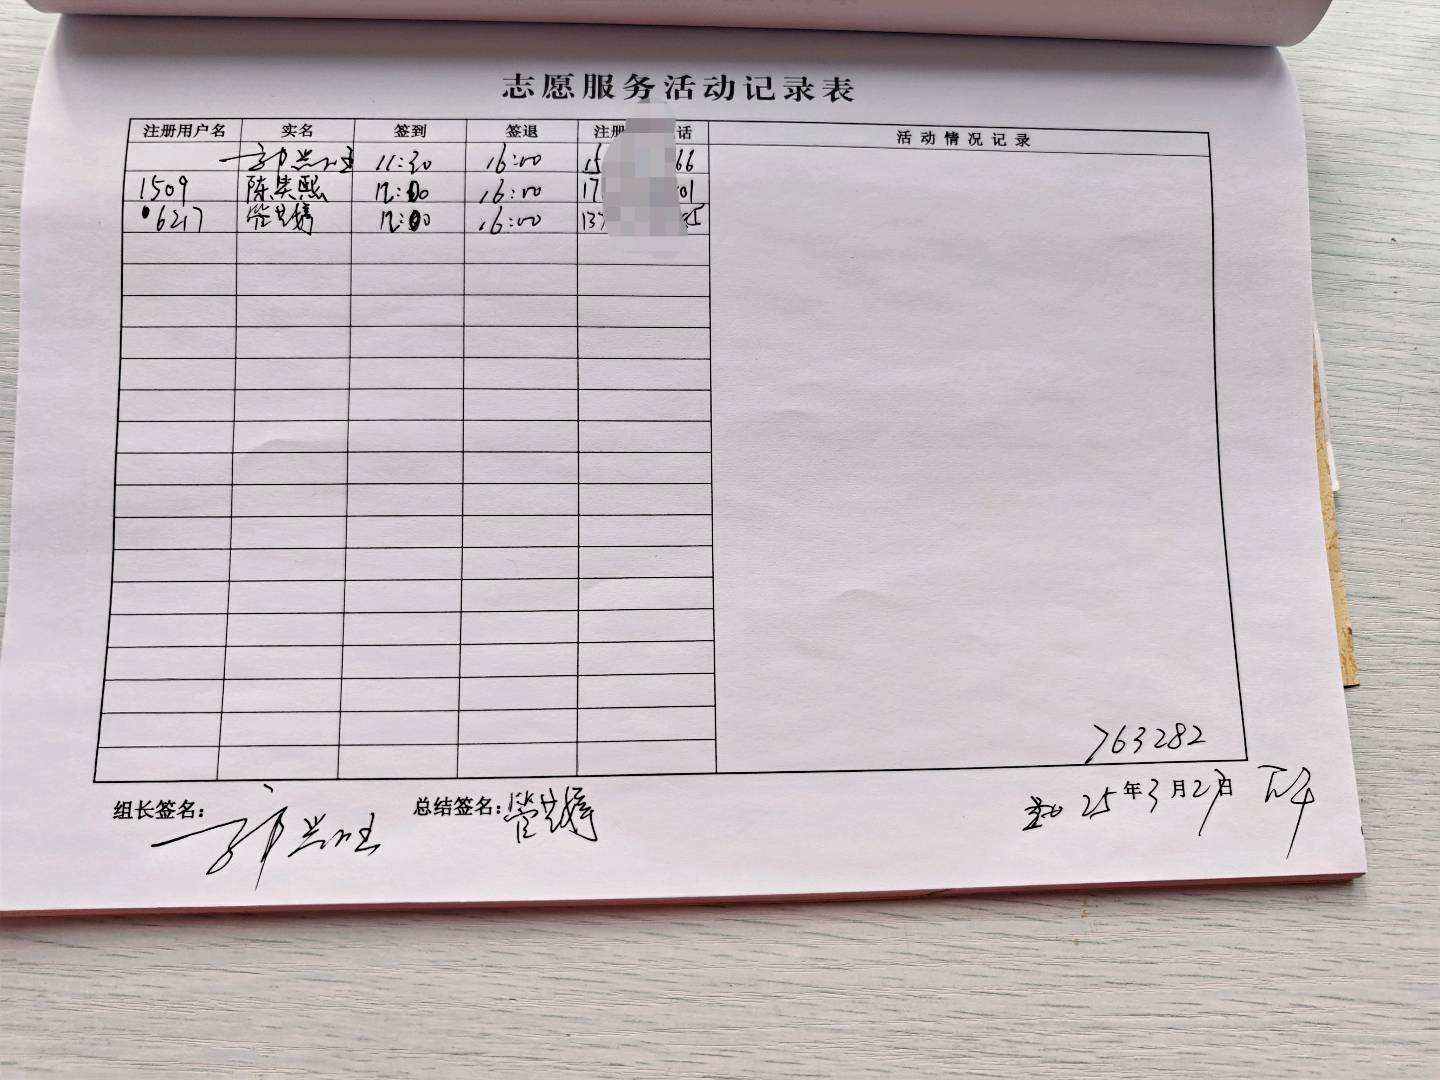 志愿服务活动记录表
注册用户名 实名 签到 签退 注册 话 活动情况记录
11:30 16:00 15 66
1509 陈 熙 12:00 16:00 17 01
6217 管 12:00 16:00 137 5
763282
组长签名: 总结签名: 管 25年3月27日 下午